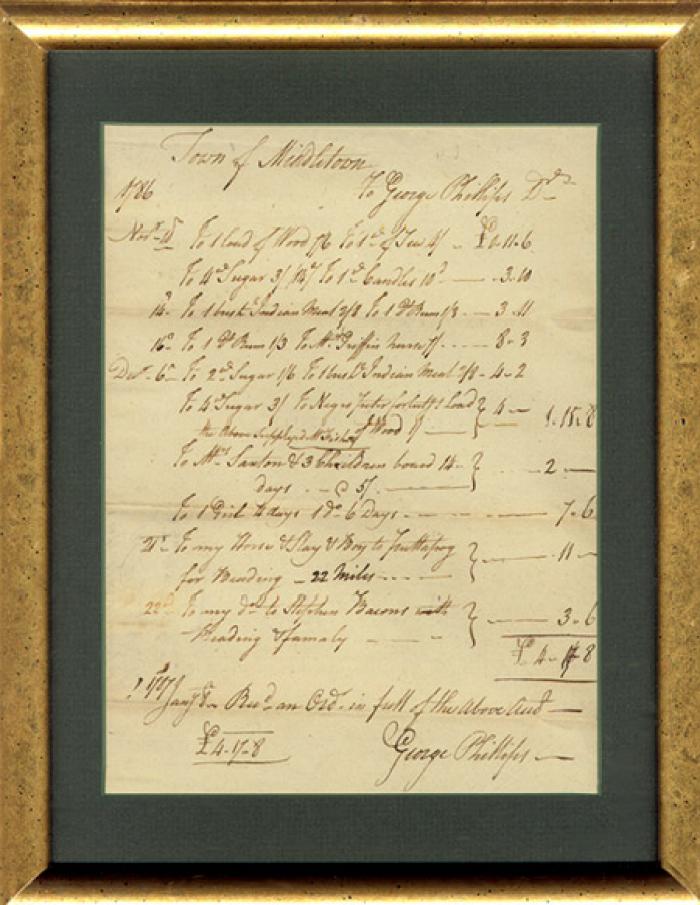 Town of Middletown
1786 To George Phillips Dr
Novr To 1 Load of Wood 7/6 To 1 of 4/ £0-11-6
To 4 Sugar 3/ To 1 Candles 10d -3-10
14 To 1 bushl Indian Meal 2/8 To 1 Rum 1/3 - 3-11
16 To 1 Rum 1/3 To Griffin nurse 7/ 8-3
Decr 6 To 2 Sugar 1/6 To 1 bushl Indian Meal 2/8 - 4-2
To 4 Sugar 3/ To Negro Load } 4 - 1-15-8
the Above Supplyed of Wood 1/
To Mrs Saxton & 3 Children board 14 } 2
days 5/
To 1 Girl 4 days 1 do 6 Days 7-6
21 To my Horse & Slay & Boy to } 11
for Beading - 22 Miles
22d To my do to Stephen Bacons with } 3-6
Beading & famaly
£4-17-8
1787 Jany 8 Recd an Ordr in full of the Above Acct
£4-17-8 George Phillips